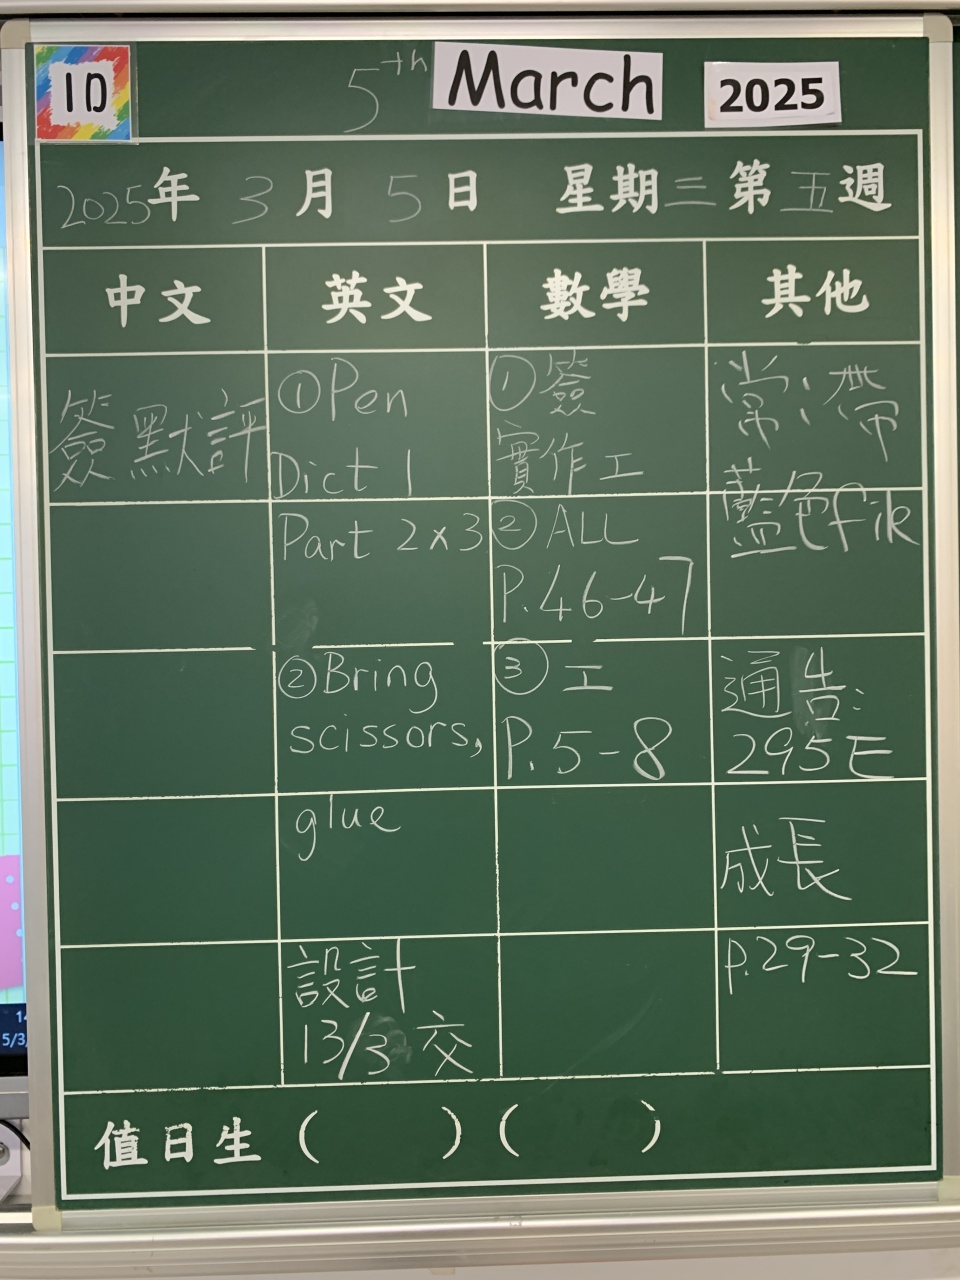 1D
5th March 2025
2025年 3月 5日 星期三第五週
中文
英文
數學
其他
簽默評
①Pen
Dict 1
Part 2×3
②Bring
scissors,
glue
設計
13/3交
①簽
實作工
②ALL
P.46-47
③工
P.5-8
常:帶
藍色file
通告:
295E
成長
P.29-32
值日生( )( )
5/3/